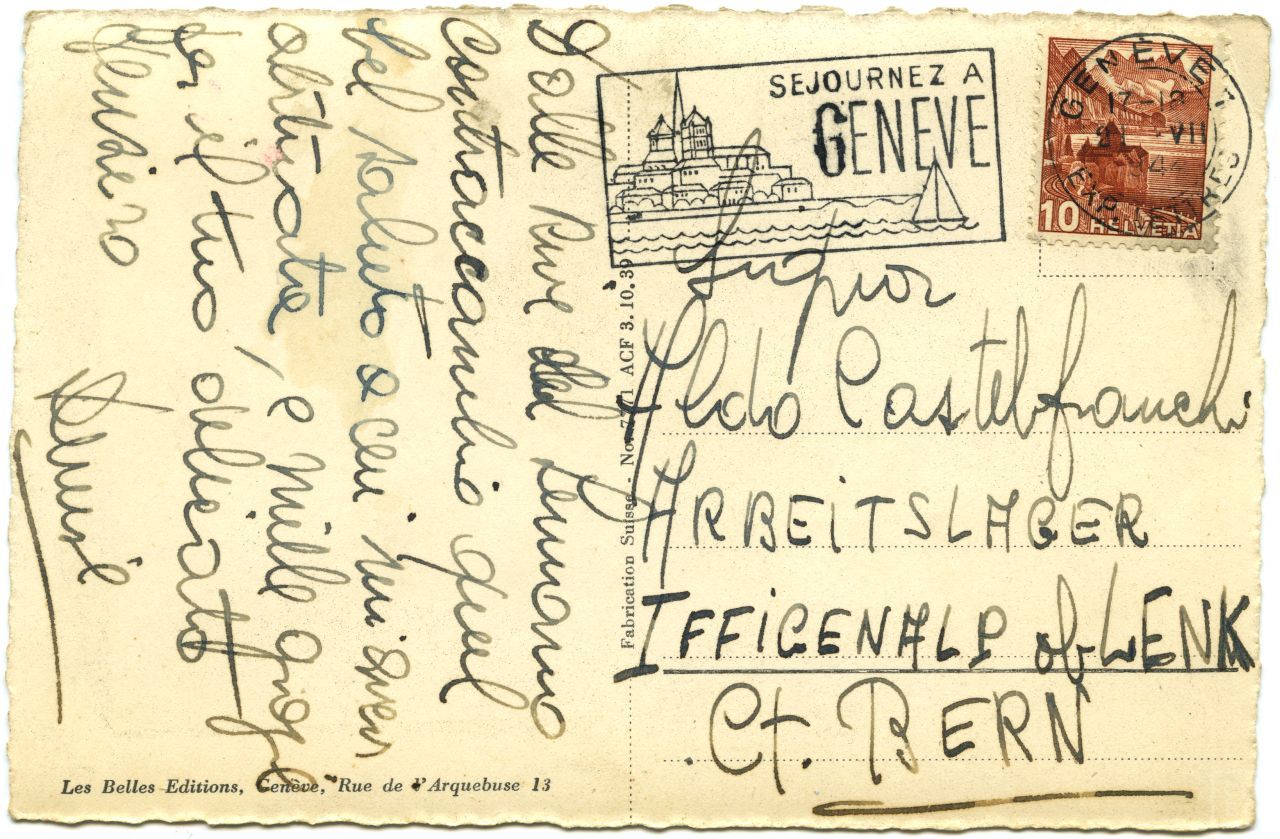 Dalle Rive del Lemano
Contraccambio quel
bel saluto a cui mi
abituata, e mille grazie
per il tuo delicato
Pensiero
SEJOURNEZ A
GENEVE
GENÈVE 1
17-18
21 VII
EXP. LETTRES
10 HELVETIA
Signor
Aldo Castelfranchi
ARBEITSLAGER
IFFIGENALP ob LENK
Ct. BERN
Fabrication Suisse - No ACF 3.10.39
Les Belles Editions, Genève, Rue de l'Arquebuse 13